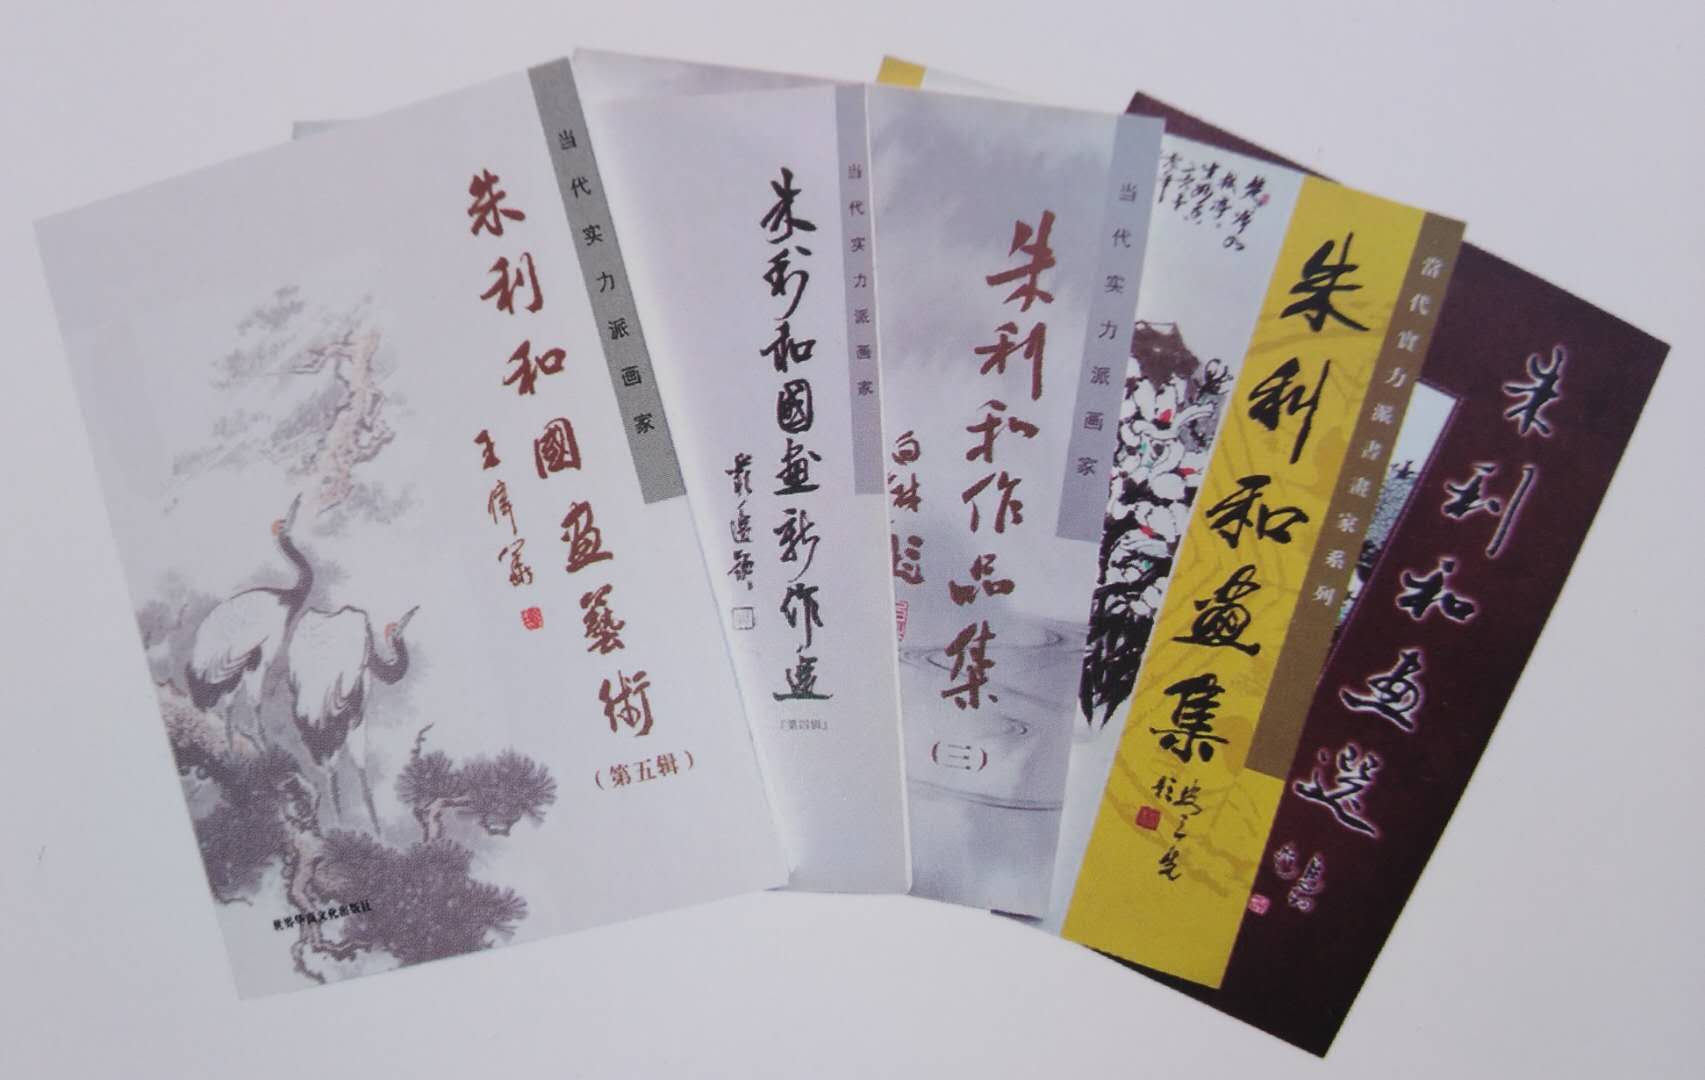 当代实力派画家
朱利和國画藝術
（第五辑）
王偉
世界华商文化出版社
当代实力派画家
朱利和國画新作選
『第四辑』
当代实力派画家
朱利和作品集
（三）
當代實力派書畫家系列
朱利和畫集
朱利和画選